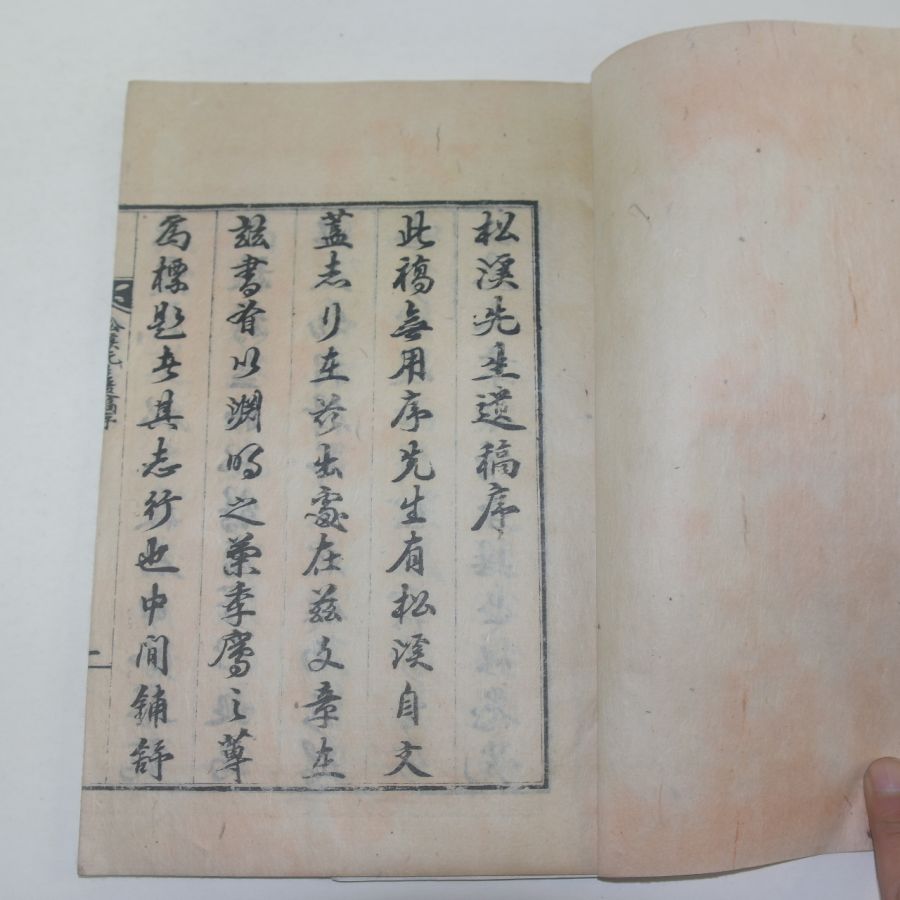 松溪先生遺稿序
此稿無用序先生有松溪自文
蓋志行在於出處在茲文章在
茲書首以淵明之菊季鷹之蓴
為標題者其志行也中間鋪舒
松溪先生遺稿序
一